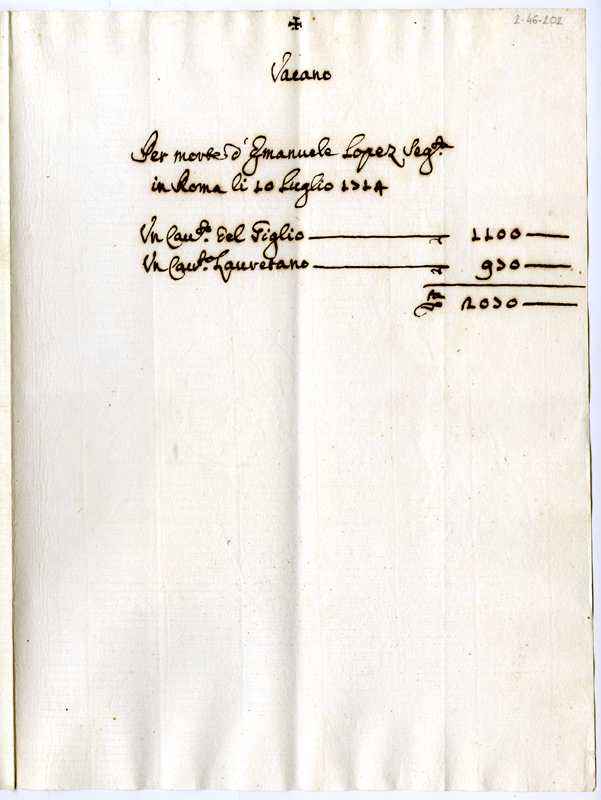 ✠
2-46-202
Vacano
Per morte d' Emanuele Lopez Seg.ta
in Roma li 10 Luglio 1714
Un Cau.to del Giglio — 1100 —
Un Cau.to Lauretano — 970 —
2070 —